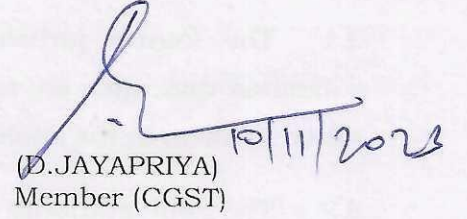 10/11/2023
(D.JAYAPRIYA)
Member (CGST)